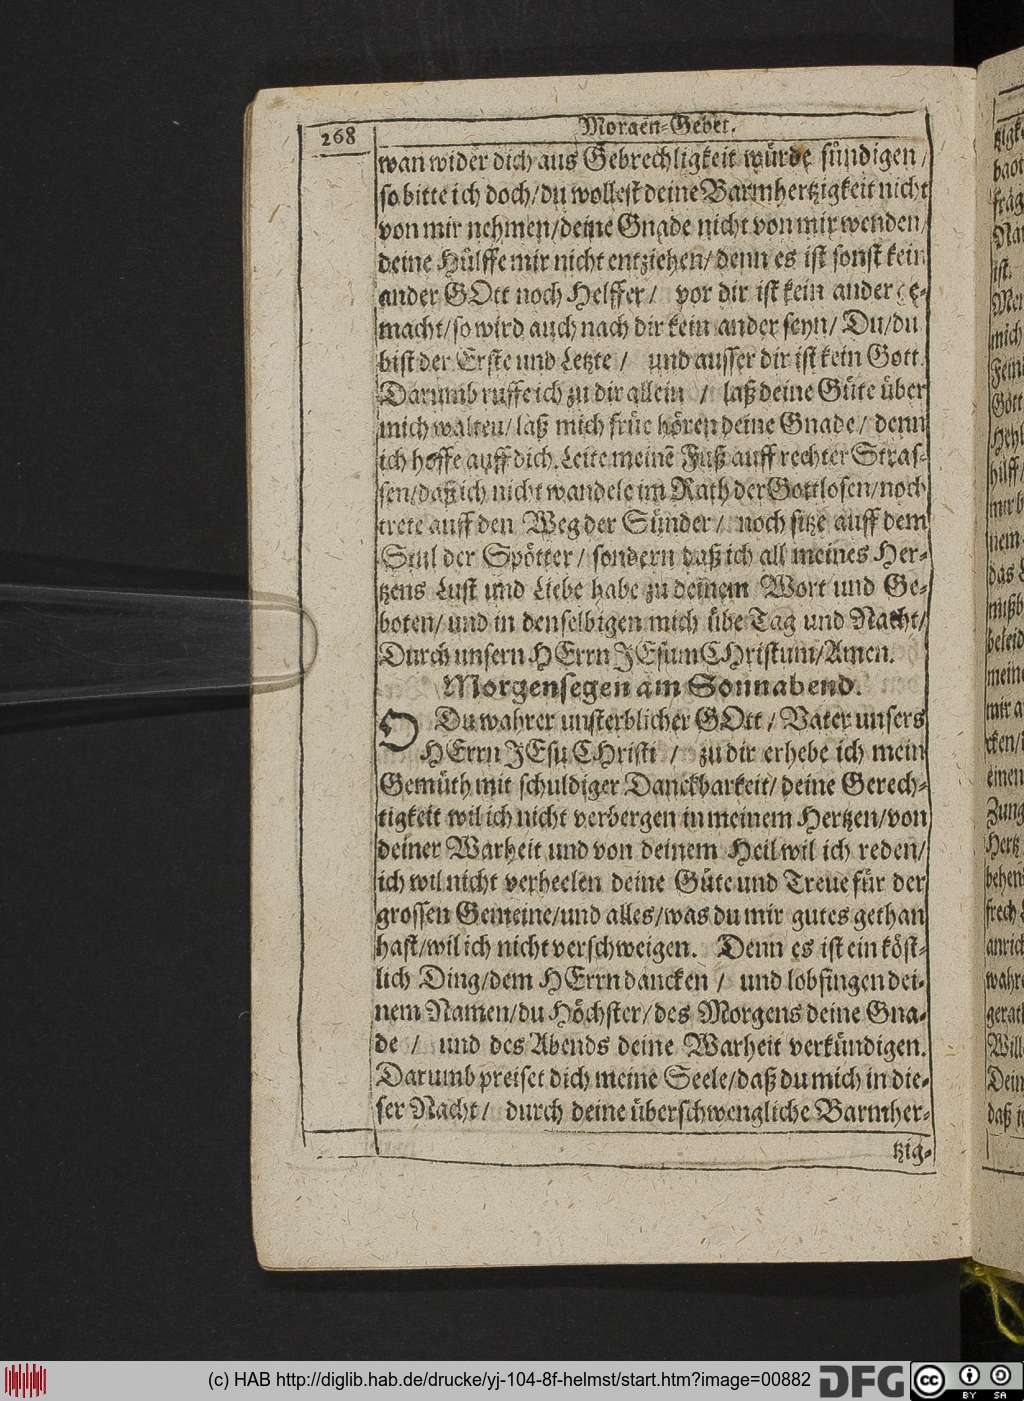 268
Morgen-Gebet.
wan wider dich aus Gebrechligkeit würde sündigen /
so bitte ich doch/du wollest deine Barmhertzigkeit nicht
von mir nehmen/deine Gnade nicht von mir wenden/
deine Hülffe mir nicht entziehen/ denn es ist sonst kein
ander GOtt noch Helffer / vor dir ist kein ander ge-
macht/so wird auch nach dir kein ander seyn/ Du/du
bist der Erste und Letzte / und ausser dir ist kein Gott.
Darumb ruffe ich zu dir allein / laß deine Güte über
mich walten/ laß mich früe hören deine Gnade / denn
ich hoffe auff dich. Leite meinē Fuß auff rechter Stras-
sen/daß ich nicht wandele im Rath der Gottlosen/noch
trete auff den Weg der Sünder / noch sitze auff dem
Stul der Spötter / sondern daß ich all meines Her-
tzens Lust und Liebe habe zu deinem Wort und Ge-
boten/ und in denselbigen mich übe Tag und Nacht/
Durch unsern HErrn JEsum CHristum/Amen.
Morgensegen am Sonnabend.
O Du wahrer unsterblicher GOtt / Vater unsers
HErrn JEsu CHristi / zu dir erhebe ich mein
Gemüth mit schuldiger Danckbarkeit/ deine Gerech-
tigkeit wil ich nicht verbergen in meinem Hertzen/von
deiner Warheit und von deinem Heil wil ich reden/
ich wil nicht verheelen deine Güte und Treue für der
grossen Gemeine/und alles/was du mir gutes gethan
hast/wil ich nicht verschweigen. Denn es ist ein köst-
lich Ding/dem HErrn dancken / und lobsingen dei-
nem Namen/du Höchster/des Morgens deine Gna-
de / und des Abends deine Warheit verkündigen.
Darumb preiset dich meine Seele/daß du mich in die-
ser Nacht / durch deine überschwengliche Barmher-
tzig-
(c) HAB http://diglib.hab.de/drucke/yj-104-8f-helmst/start.htm?image=00882
DFG
cc
BY SA